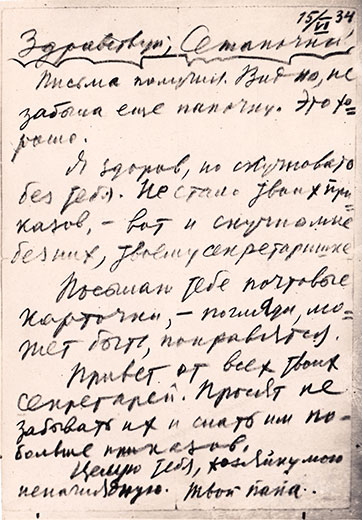 15/VI 34
Здравствуй, Сетаночка!
Письма получил. Видно, не
забыла еще папочку. Это хо-
рошо.
Я здоров, но скучновато
без тебя. Не стало твоих при-
казов, – вот и скучно мне
без них, твоему секретаришке.
Посылаю тебе почтовые
карточки, – погляди, мо-
жет быть, понравятся.
Привет от всех твоих
секретарей. Просят не
забывать их и слать им по-
больше приказов.
Целую тебя, хозяйку мою
ненаглядную. Твой папа.